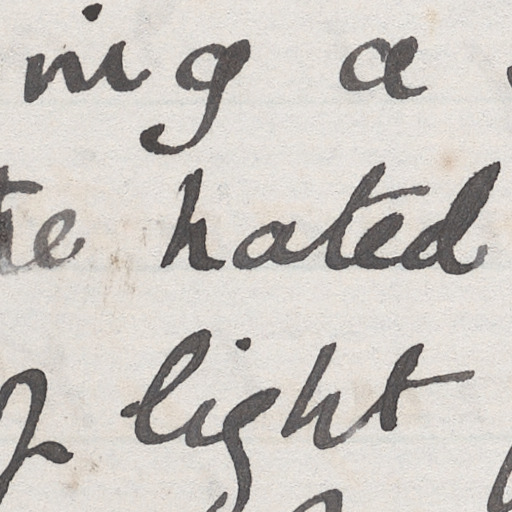 ning a
te hated
of light